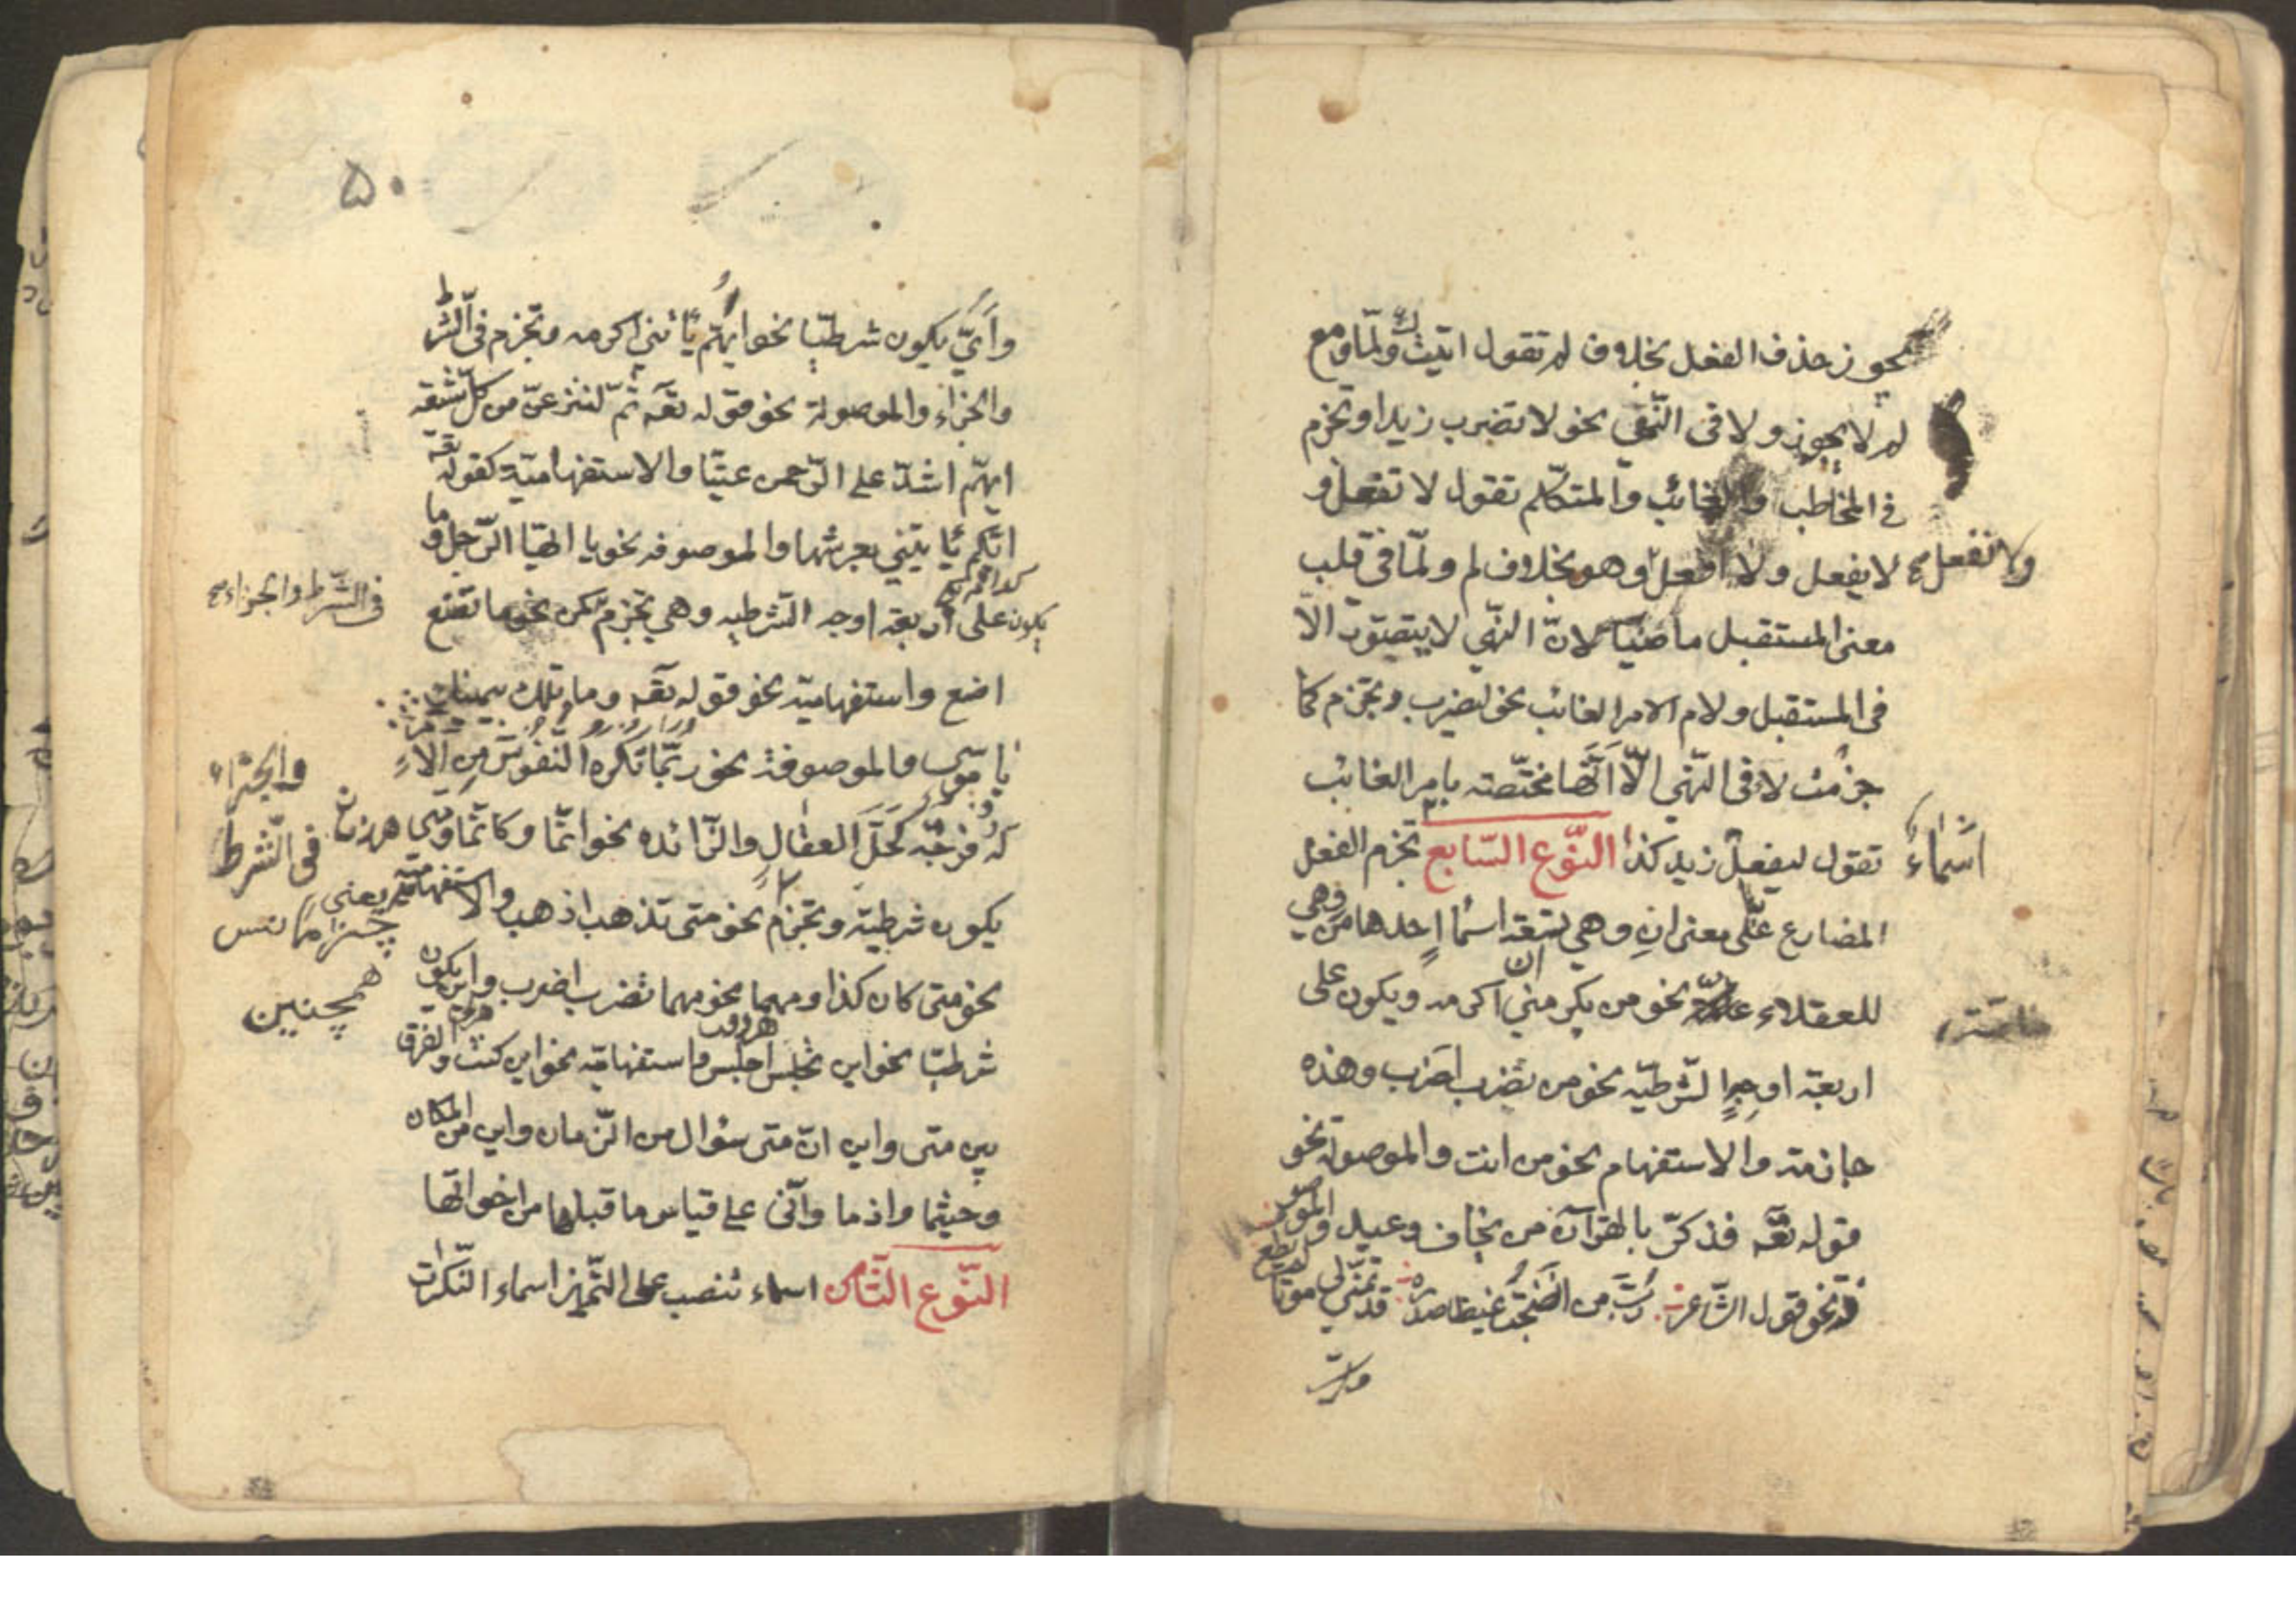 يجوز حذف الفعل بخلاف لم تقول اتيتك ولمّا ومع
لم لا يجوز ولا فى النّهى نحو لا تضرب زيدا وتجزم
فى المخاطب والغائب والمتكلّم تقول لا تفعل و
ولا تفعل لا يفعل ولا افعل وهو بخلاف لم ولمّا فى قلب
معنى المستقبل ماضيّا لانّ النهى لا يتصوّر الّا
فى المستقبل ولام الامر الغائب نحو ليضرب وتجزم كما
جزمت لا فى النّهى الّا انّها مختّصة بامر الغائب
تقول ليفعل زيد كذا النّوع السّابع تجزم الفعل
اسماء
المضارع على معنى ان وهى تسعة اسما احدها من وهى
للعقلاء نحو من يكرمنى اكرمه ويكون على
اربعة اوجه الشّرطيّه نحو من يضرب اضرب وهذه
جازمة والاستفهام نحو من انت والموصولة نحو
قوله تعه فذكّر بالقرآن من يخاف وعيد والموصو
فة نحو قول الشّاعر ربّ من انضجت غيظا صدره قد تمنّى لى موتا لم يطع
وايّ
۵۰
وايّ يكون شرطيّا نحو ايّهم يأتنى اكرمه وتجزم فى الشّرط
والجزاء والموصولة نحو قوله تعه ثمّ لننزعنّ من كلّ شيعة
ايّهم اشدّ على الرّحمن عتيّا والاستفهاميّة كقوله تعه
ايّكم يأتينى بعرشها والموصوفه نحو يا ايّها الرّجل وما
يكون على اربعة اوجه الشّرطيه وهى تجزم نحو ما تصنع
فى الشّرط والجزاء صح
اضع واستفهاميّة نحو قوله تعه وما تلك بيمينك
يا موسى والموصوفة نحو ربّما تكره النّفوس من الامر
له فرجة كحلّ العقال والزّائده نحو انّما وكانّما ومتى
والجزاء
فى الشّرط
يكون شرطيّة وتجزم نحو متى تذهب اذهب والاستفهاميّة
يعنى
همچنين
نحو متى كان كذا ومهما نحو مهما تضرب اضرب واين يكون
شرطيّا نحو اين تجلس اجلس واستفهاميّه نحو اين كنت والفرق
بين متى واين انّ متى سؤال من الزّمان واين من المكان
وحيثما واذما وانّى على قياس ما قبلها من اخواتها
النّوع الثّامن اسماء تنصب على التّميز اسماء النّكرات